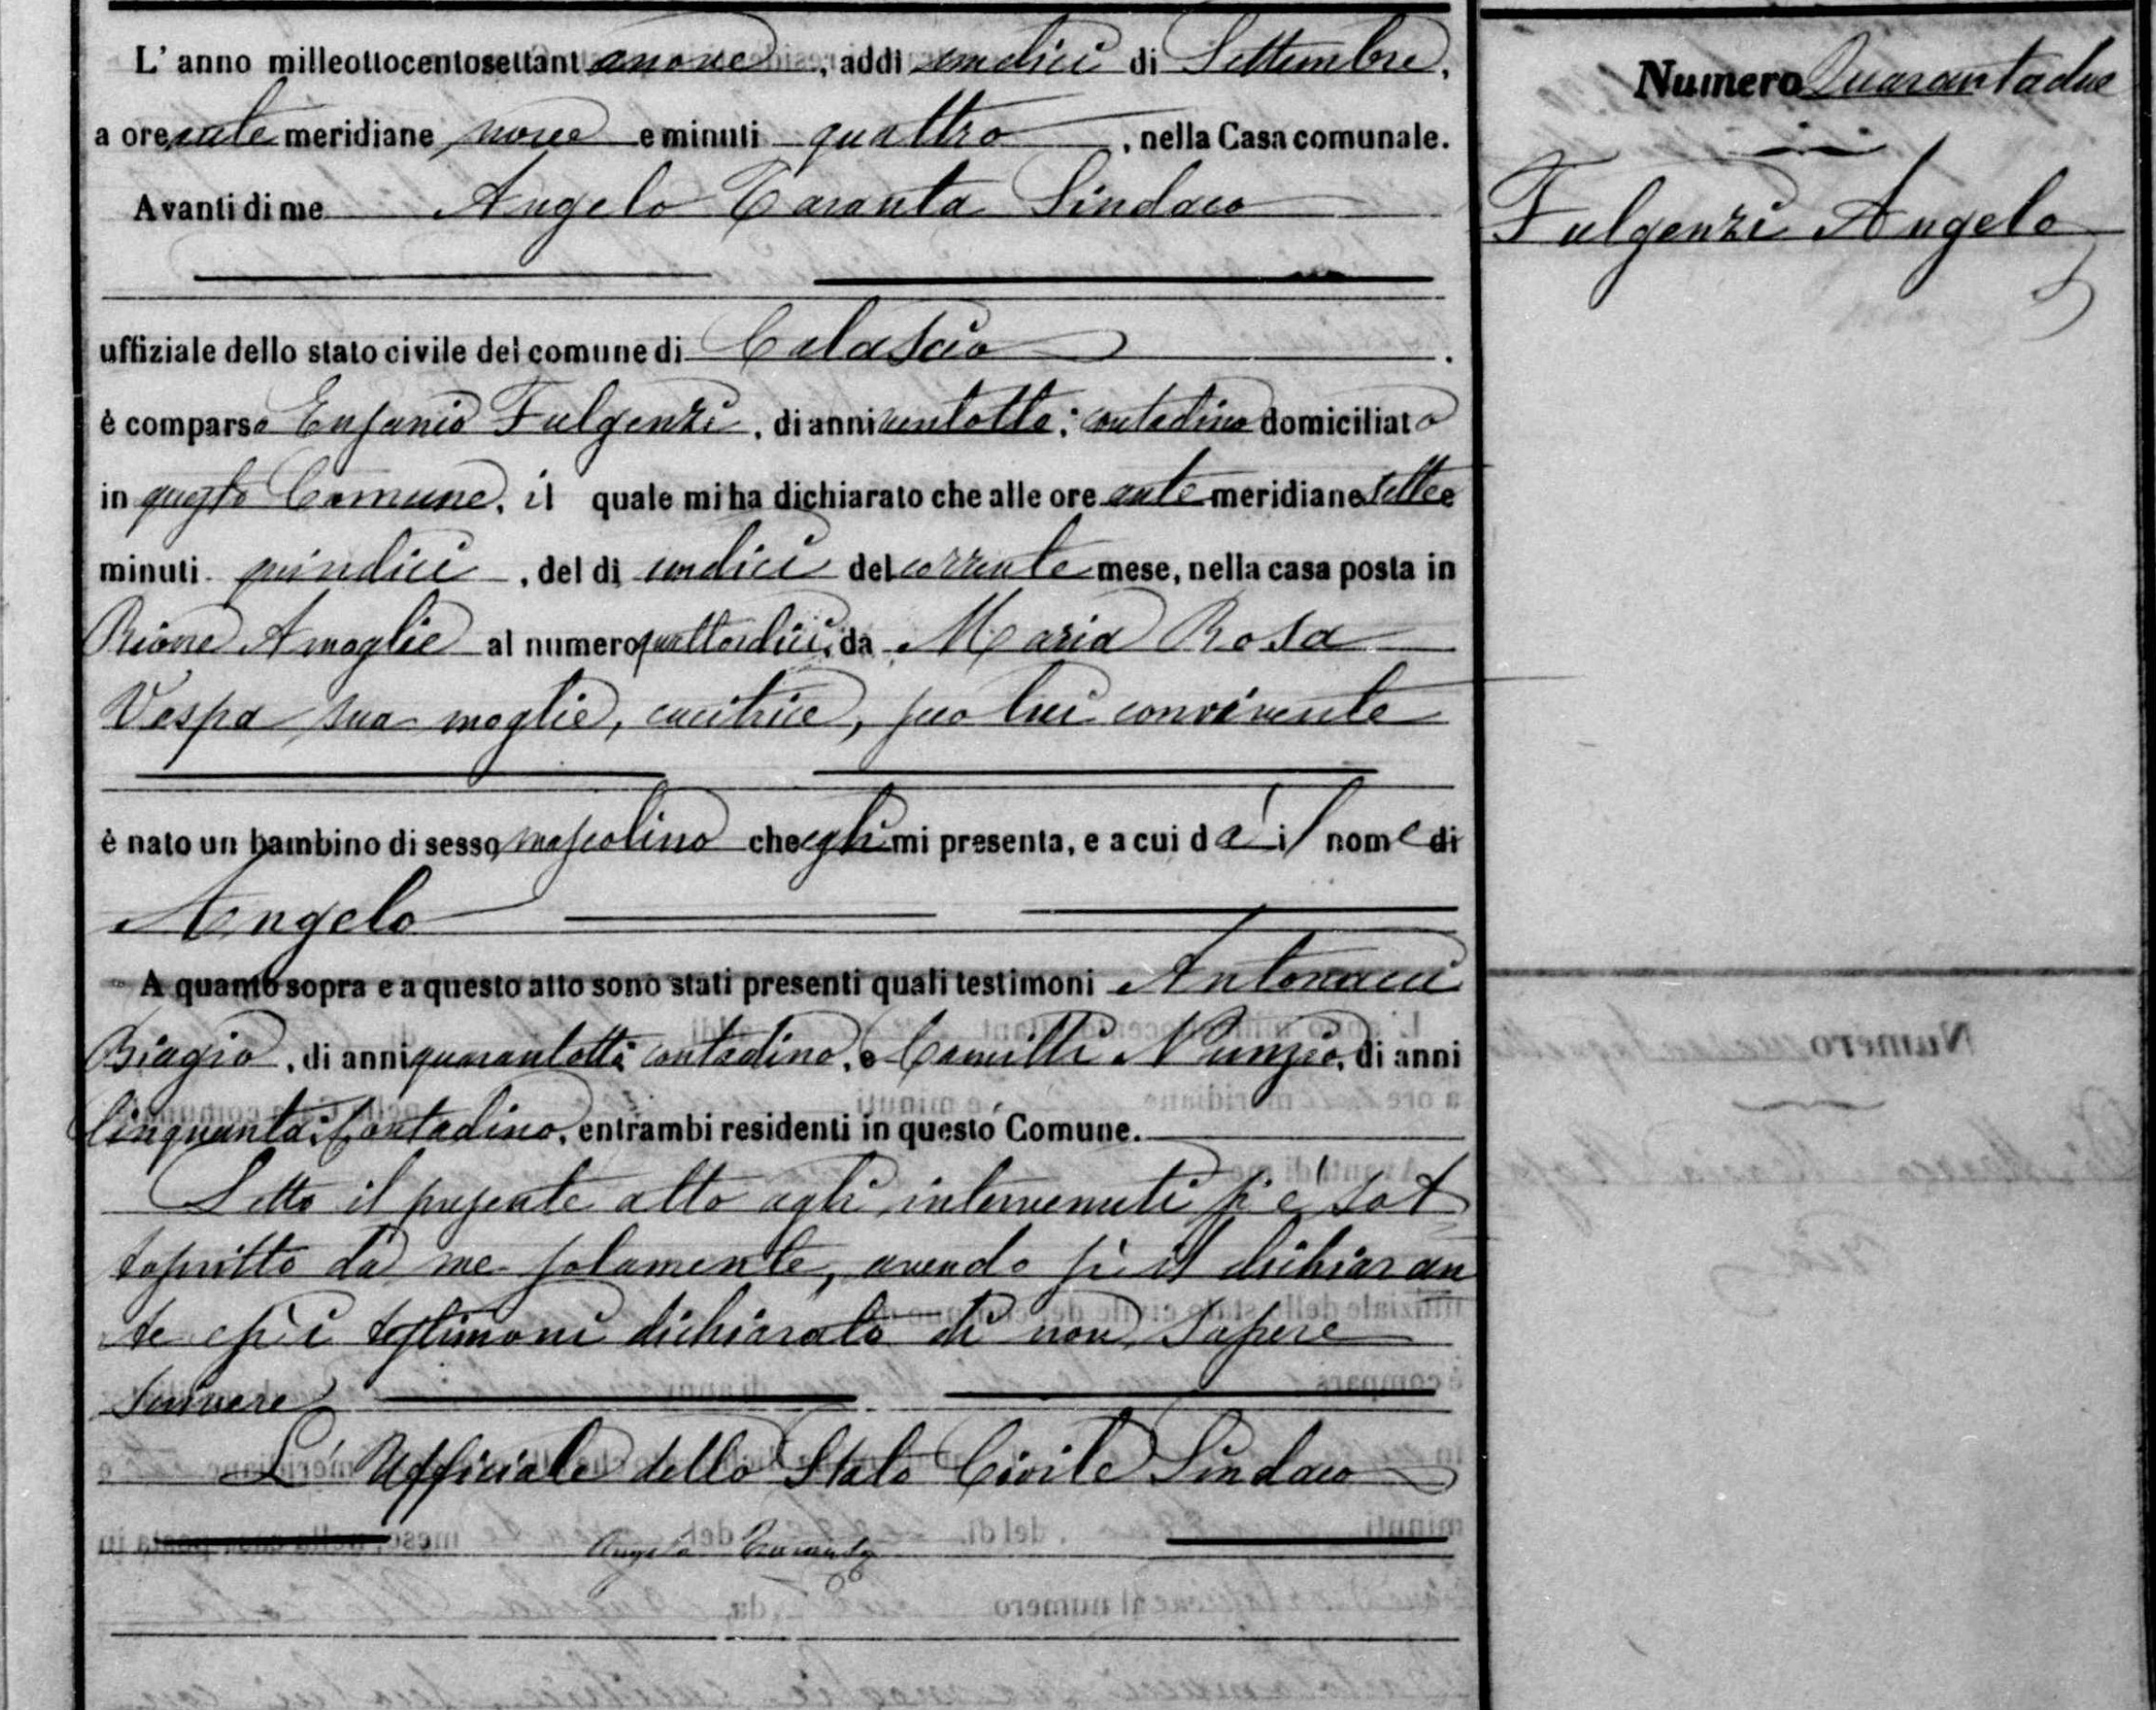 L' anno milleottocentosettantanove, addi undici di Settembre,
a ore ante meridiane nove e minuti quattro, nella Casa comunale.
Avanti di me Angelo Taranta Sindaco
uffiziale dello stato civile del comune di Calascio.
è comparso Eufanio Fulgenzi, di anni ventotto, contadino domiciliato
in questo Comune, il quale mi ha dichiarato che alle ore ante meridiane sette e
minuti quindici, del di undici del corrente mese, nella casa posta in
Rione Amoglie al numero quattordici, da Maria Rosa
Vespa sua moglie, cucitrice, seco lui convivente
è nato un bambino di sesso mascolino che egli mi presenta, e a cui dà il nome di
Angelo
A quanto sopra e a questo atto sono stati presenti quali testimoni Antonacci
Biagio, di anni quarantotto contadino, e Camilli Nunzio, di anni
Cinquanta, Contadino, entrambi residenti in questo Comune.
Letto il presente atto agli intervenuti si è sot
toscritto da me solamente, avendo sì il dichiaran
te che i testimoni dichiarato di non sapere
scrivere
L' Uffiziale dello Stato Civile Sindaco
Angelo Taranta
Numero Quarantadue
Fulgenzi Angelo